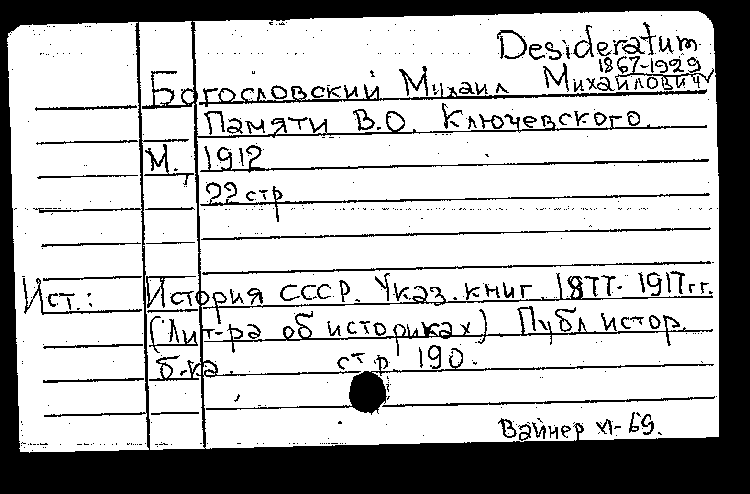 Desideratum
1867-1929
Богословский Михаил Михайлович
Памяти В.О. Ключевского.
М., 1912
22 стр
Ист.: История СССР. Указ. книг 1877-1917 гг.
(Лит-ра об историках) Публ истор.
б-ка. стр. 190.
Вайнер XI-69.